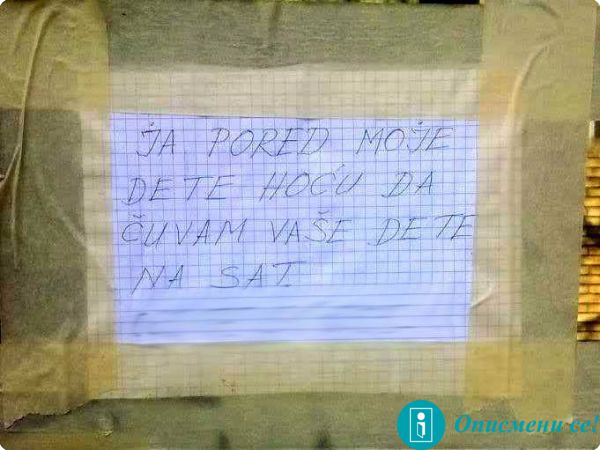 JA PORED MOJE
DETE HOĆU DA
ČUVAM VAŠE DETE
NA SAT
Описмени се!